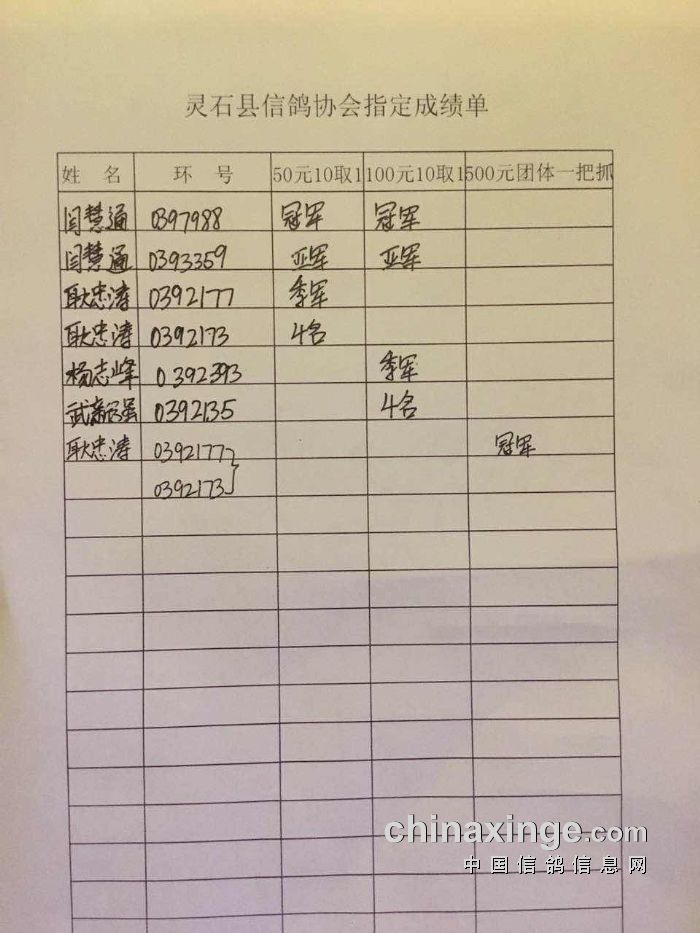 灵石县信鸽协会指定成绩单
姓 名 环 号 50元10取1 100元10取1 500元团体一把抓
闫慧通 0397988 冠军 冠军
闫慧通 0393359 亚军 亚军
耿忠涛 0392177 季军
耿忠涛 0392173 4名
杨志峰 0392393 季军
武 强 0392135 4名
耿忠涛 0392177 冠军
0392173
chinaxinge.com
中国信鸽信息网